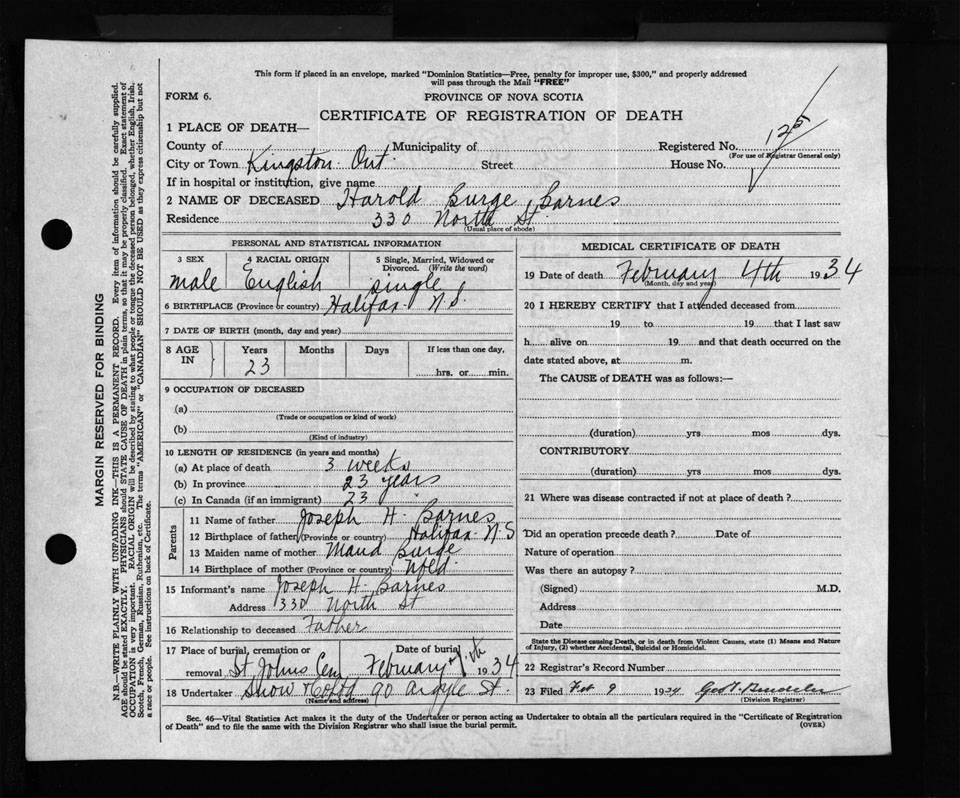 This form if placed in an envelope, marked "Dominion Statistics—Free, penalty for improper use, $300," and properly addressed
will pass through the Mail "FREE"
FORM 6.
PROVINCE OF NOVA SCOTIA
CERTIFICATE OF REGISTRATION OF DEATH
1 PLACE OF DEATH—
125
County of
Municipality of
Registered No.
(For use of Registrar General only)
City or Town Kingston Ont.
Street
House No.
If in hospital or institution, give name
2 NAME OF DECEASED Harold Burge Barnes
Residence 330 North St
(Usual place of abode)
PERSONAL AND STATISTICAL INFORMATION
3 SEX
male
4 RACIAL ORIGIN
English
5 Single, Married, Widowed or
Divorced. (Write the word)
single
6 BIRTHPLACE (Province or country) Halifax N.S.
7 DATE OF BIRTH (month, day and year)
8 AGE
IN
Years
23
Months
Days
If less than one day,
hrs. or min.
9 OCCUPATION OF DECEASED
(a)
(Trade or occupation or kind of work)
(b)
(Kind of industry)
10 LENGTH OF RESIDENCE (in years and months)
(a) At place of death 3 weeks
(b) In province 23 years
(c) In Canada (if an immigrant) 23 "
Parents
11 Name of father Joseph H. Barnes
12 Birthplace of father (Province or country) Halifax N.S
13 Maiden name of mother Maud Burge
14 Birthplace of mother (Province or country) Nfld.
15 Informant's name Joseph H. Barnes
Address 330 North St
16 Relationship to deceased Father
17 Place of burial, cremation or
removal St Johns Cem
Date of burial
February 1934
18 Undertaker Snow & Co Ltd 90 Argyle St.
(Name and address)
MEDICAL CERTIFICATE OF DEATH
19 Date of death February 4th 1934
(Month, day and year)
20 I HEREBY CERTIFY that I attended deceased from
19 to 19 that I last saw
h alive on 19 and that death occurred on the
date stated above, at m.
The CAUSE of DEATH was as follows:—
(duration) yrs mos dys.
CONTRIBUTORY
(duration) yrs mos dys.
21 Where was disease contracted if not at place of death?
Did an operation precede death? Date of
Nature of operation
Was there an autopsy?
(Signed) M.D.
Address
Date
State the Disease causing Death, or in death from Violent Causes, state (1) Means and Nature
of Injury, (2) whether Accidental, Suicidal or Homicidal.
22 Registrar's Record Number
23 Filed Feb 9 1934
(Division Registrar)
Sec. 46—Vital Statistics Act makes it the duty of the Undertaker or person acting as Undertaker to obtain all the particulars required in the "Certificate of Registration
of Death" and to file the same with the Division Registrar who shall issue the burial permit.
(OVER)
MARGIN RESERVED FOR BINDING
N.B.—WRITE PLAINLY WITH UNFADING INK—THIS IS A PERMANENT RECORD. Every item of information should be carefully supplied.
AGE should be stated EXACTLY. PHYSICIANS should STATE CAUSE OF DEATH in plain terms, so that it may be properly classified. Exact statement of
OCCUPATION is very important. RACIAL ORIGIN will be described by stating to what people or tongue the deceased person belonged, whether English, Irish,
Scotch, French, German, Russian, Ruthenian, etc. The terms "AMERICAN" or "CANADIAN" SHOULD NOT BE USED as they express citizenship but not
a race or people. See instructions on back of Certificate.